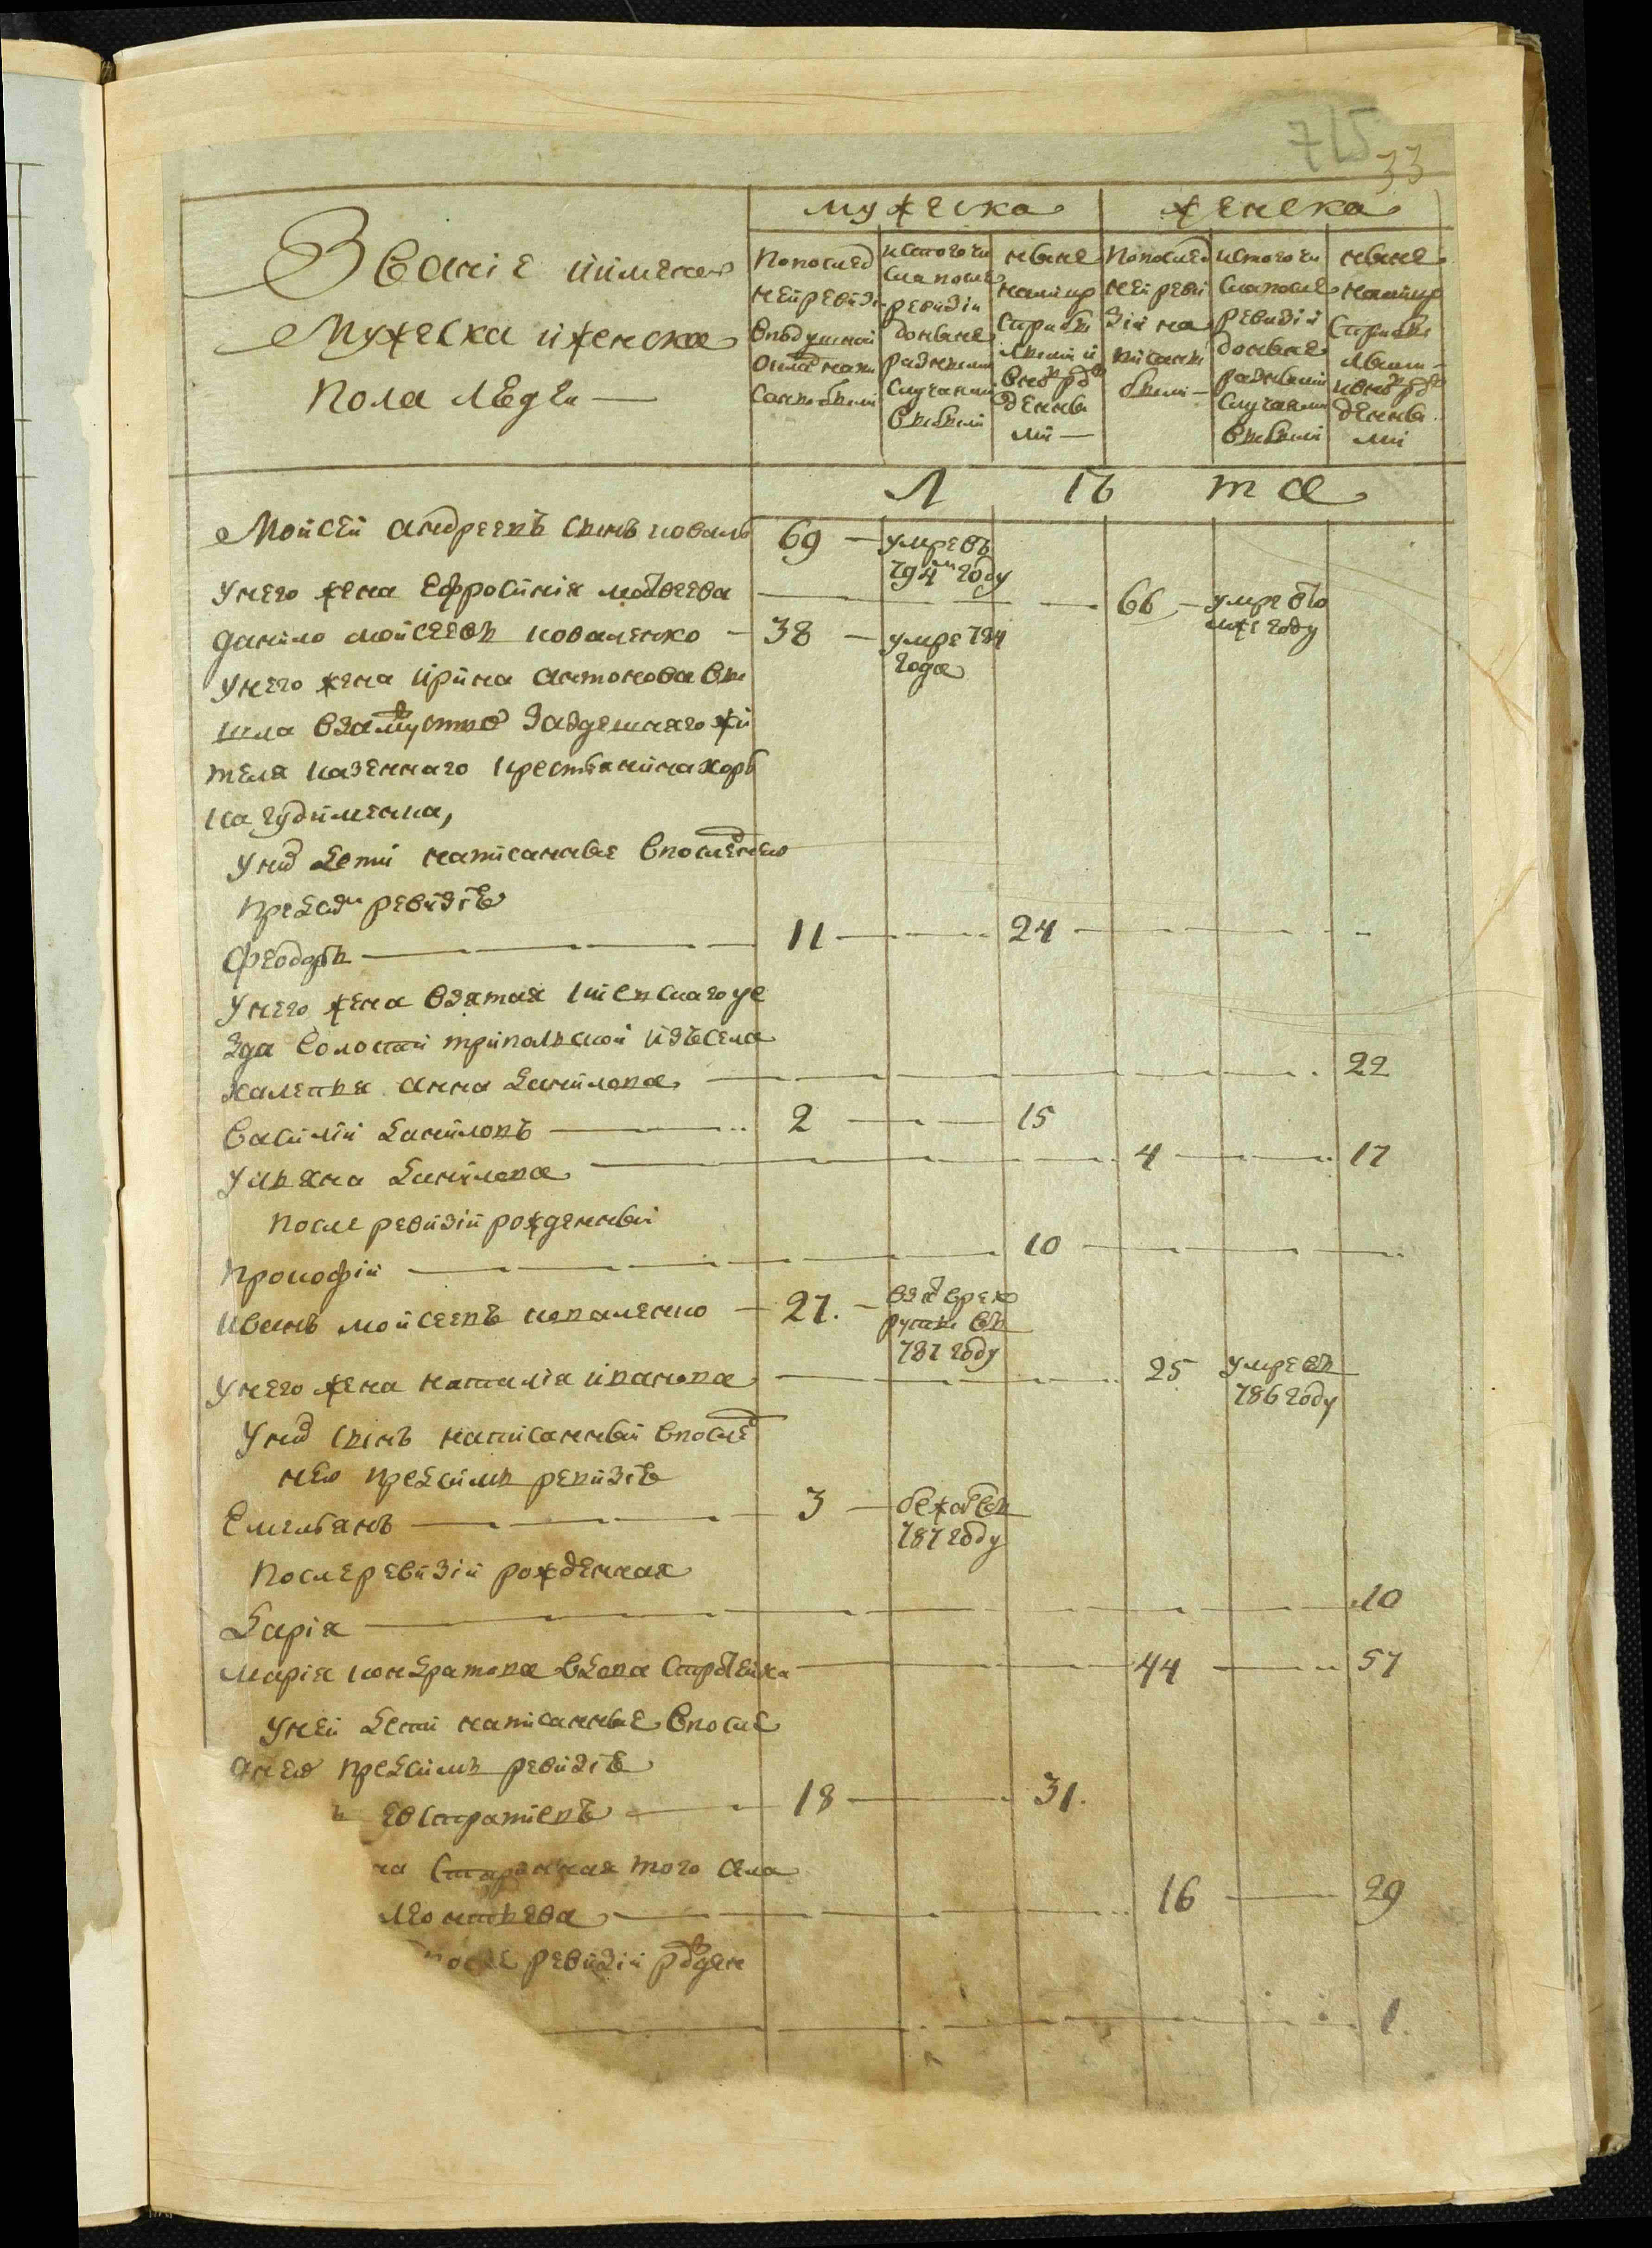 715
33
Званіе и имена
мужеска и женска
пола людеи —
мужеска
женска
По послед
неи ревизі
в подушнои
окладъ напи
санныхъ
ис того чи
сла после
ревизіи
до ныне
разными
случаями
выбыли
ныне
на лицо
с прибы
лыми и
вновь рож
денны
ми —
По послед
неи реви
зіи на
писанны
хъ —
ис того чи
сла после
ревизіи
до ныне
разными
случаями
выбыли
ныне
на лицо
с прибы
лыми
и вновь рож
денны
ми
Л ѣ т а
Моисеи Андреевъ сынъ коваль 69 — умре въ
794м году
У него жена Ефросинія Матвеева — 66 — умре въ
году
Данило Моисеевъ коваленко — 38 — умре 784
года
У него жена Ирина Антонова вы
шла в замужство за здешняго жи
теля казенного крестьянина
на
У них дети написанные в последнею
пред сим ревизіею
Феодоръ — 11 — 24 —
У него жена взятая Кіевскаго уе
зда волости трипольскои изъ села
халепья Анна Данилова — 22
Василіи Даниловъ — 2 — 15
Ульяна Данилова — 4 — 17
После ревизіи рожденныи
Прокофіи — 10 —
Иванъ Моисеевъ коваленко — 27. — взят в рек
руты въ
787 году
У него жена Наталія Иванова — 25 умре въ
786 году
У них сынъ написанныи в послед
нею пред симъ ревизіею
Емельянъ — 3 — бежал въ
787 году
После ревизіи рожденная
Дарія — 10
Марія Кондратова вдова — 44 — 57
У неи дети написанные в после
днею пред симъ ревизіею
ъ Евстратіевъ — 18 — 31.
на старинная того села
Леонтьева — 16 — 29
после ревизіи рожден
— 1.